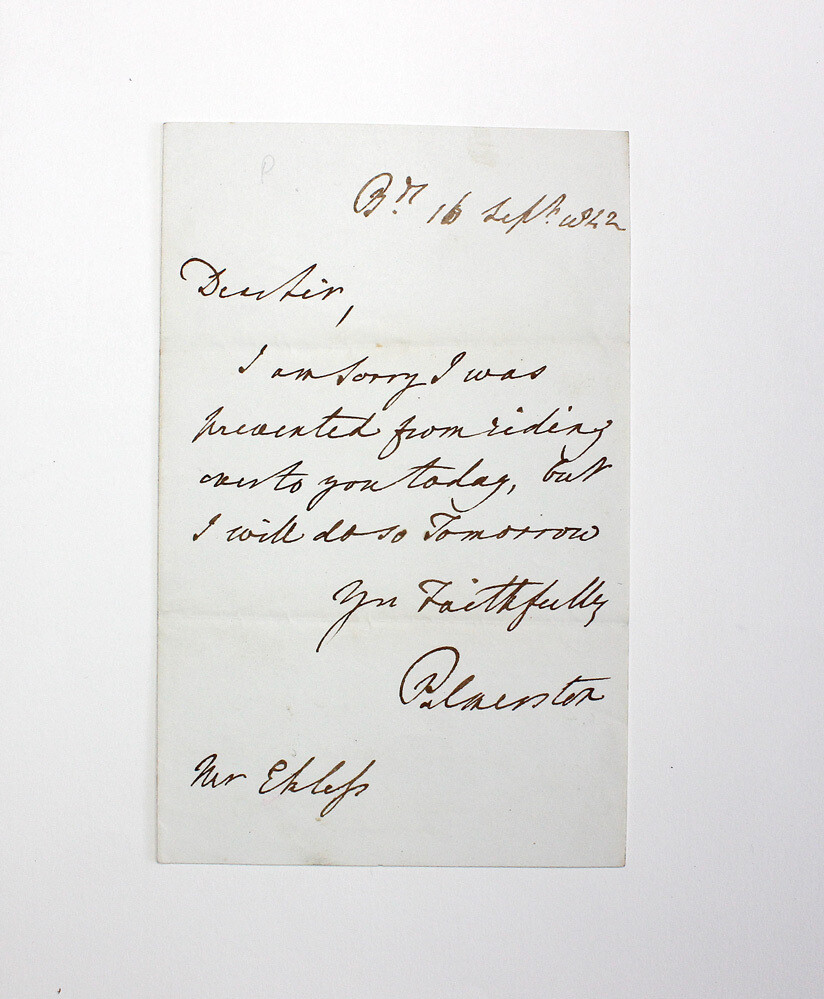 P
Bds 16 Sept. 1842
Dear Sir,
I am sorry I was
prevented from riding
over to you today, but
I will do so Tomorrow
Yrs Faithfully
Palmerston
Mr